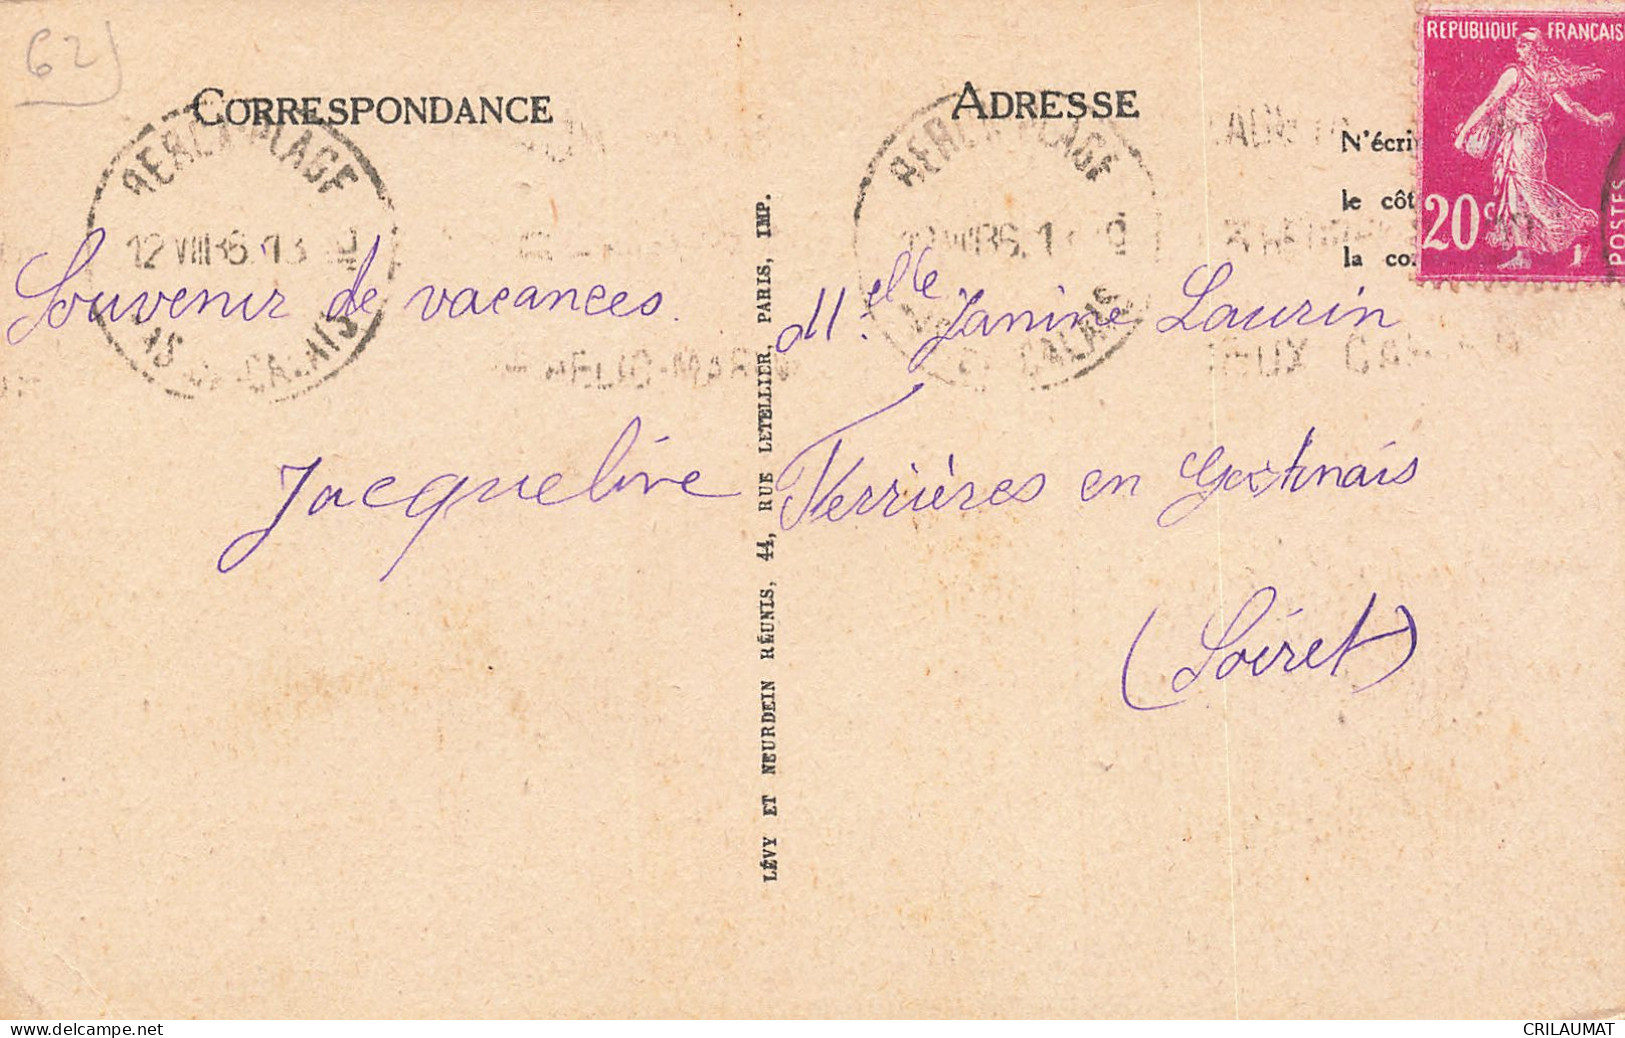 62
CORRESPONDANCE
ADRESSE
REPUBLIQUE FRANÇAIS
20c
POSTES
N'écri
le côt
la co
BERCK-PLAGE
12 VIII 36
PAS DE CALAIS
BERCK PLAGE
CALAIS
Souvenir de vacances.
Jacqueline
Melle Janine Laurin
Ferrières en Gatinais
(Loiret)
LÉVY ET NEURDEIN RÉUNIS, 44, RUE LETELLIER, PARIS, IMP.
delcampe.net
CRILAUMAT